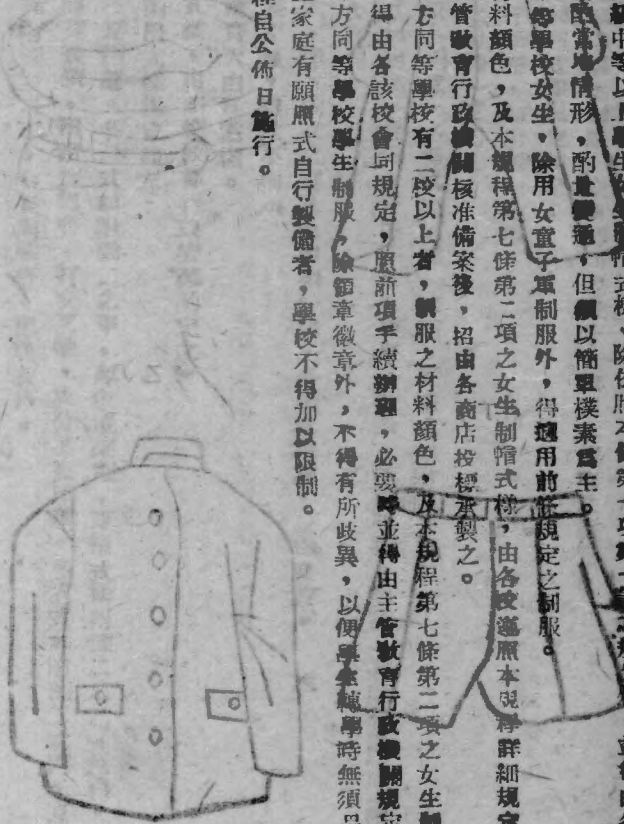 級中等以上學生
的當地情形，酌量變通，但須以簡單樸素爲主。
等學校女生，除用女童子軍制服外，得適用前條規定之制服。
料顏色，及本規程第七條第二項之女生制帽式樣，由各校遵照本規程詳細規定
管教育行政機關核准備案後，招由各商店投標承製之。
方同等學校有二校以上者，制服之材料顏色，及本規程第七條第二項之女生制
得由各該校會同規定，照前項手續辦理，必要時並得由主管教育行政機關規定
方同等學校學生制服，除領章徽章外，不得有所歧異，以便學生轉學時無須
家庭有願照式自行製備者，學校不得加以限制。
程自公佈日施行。